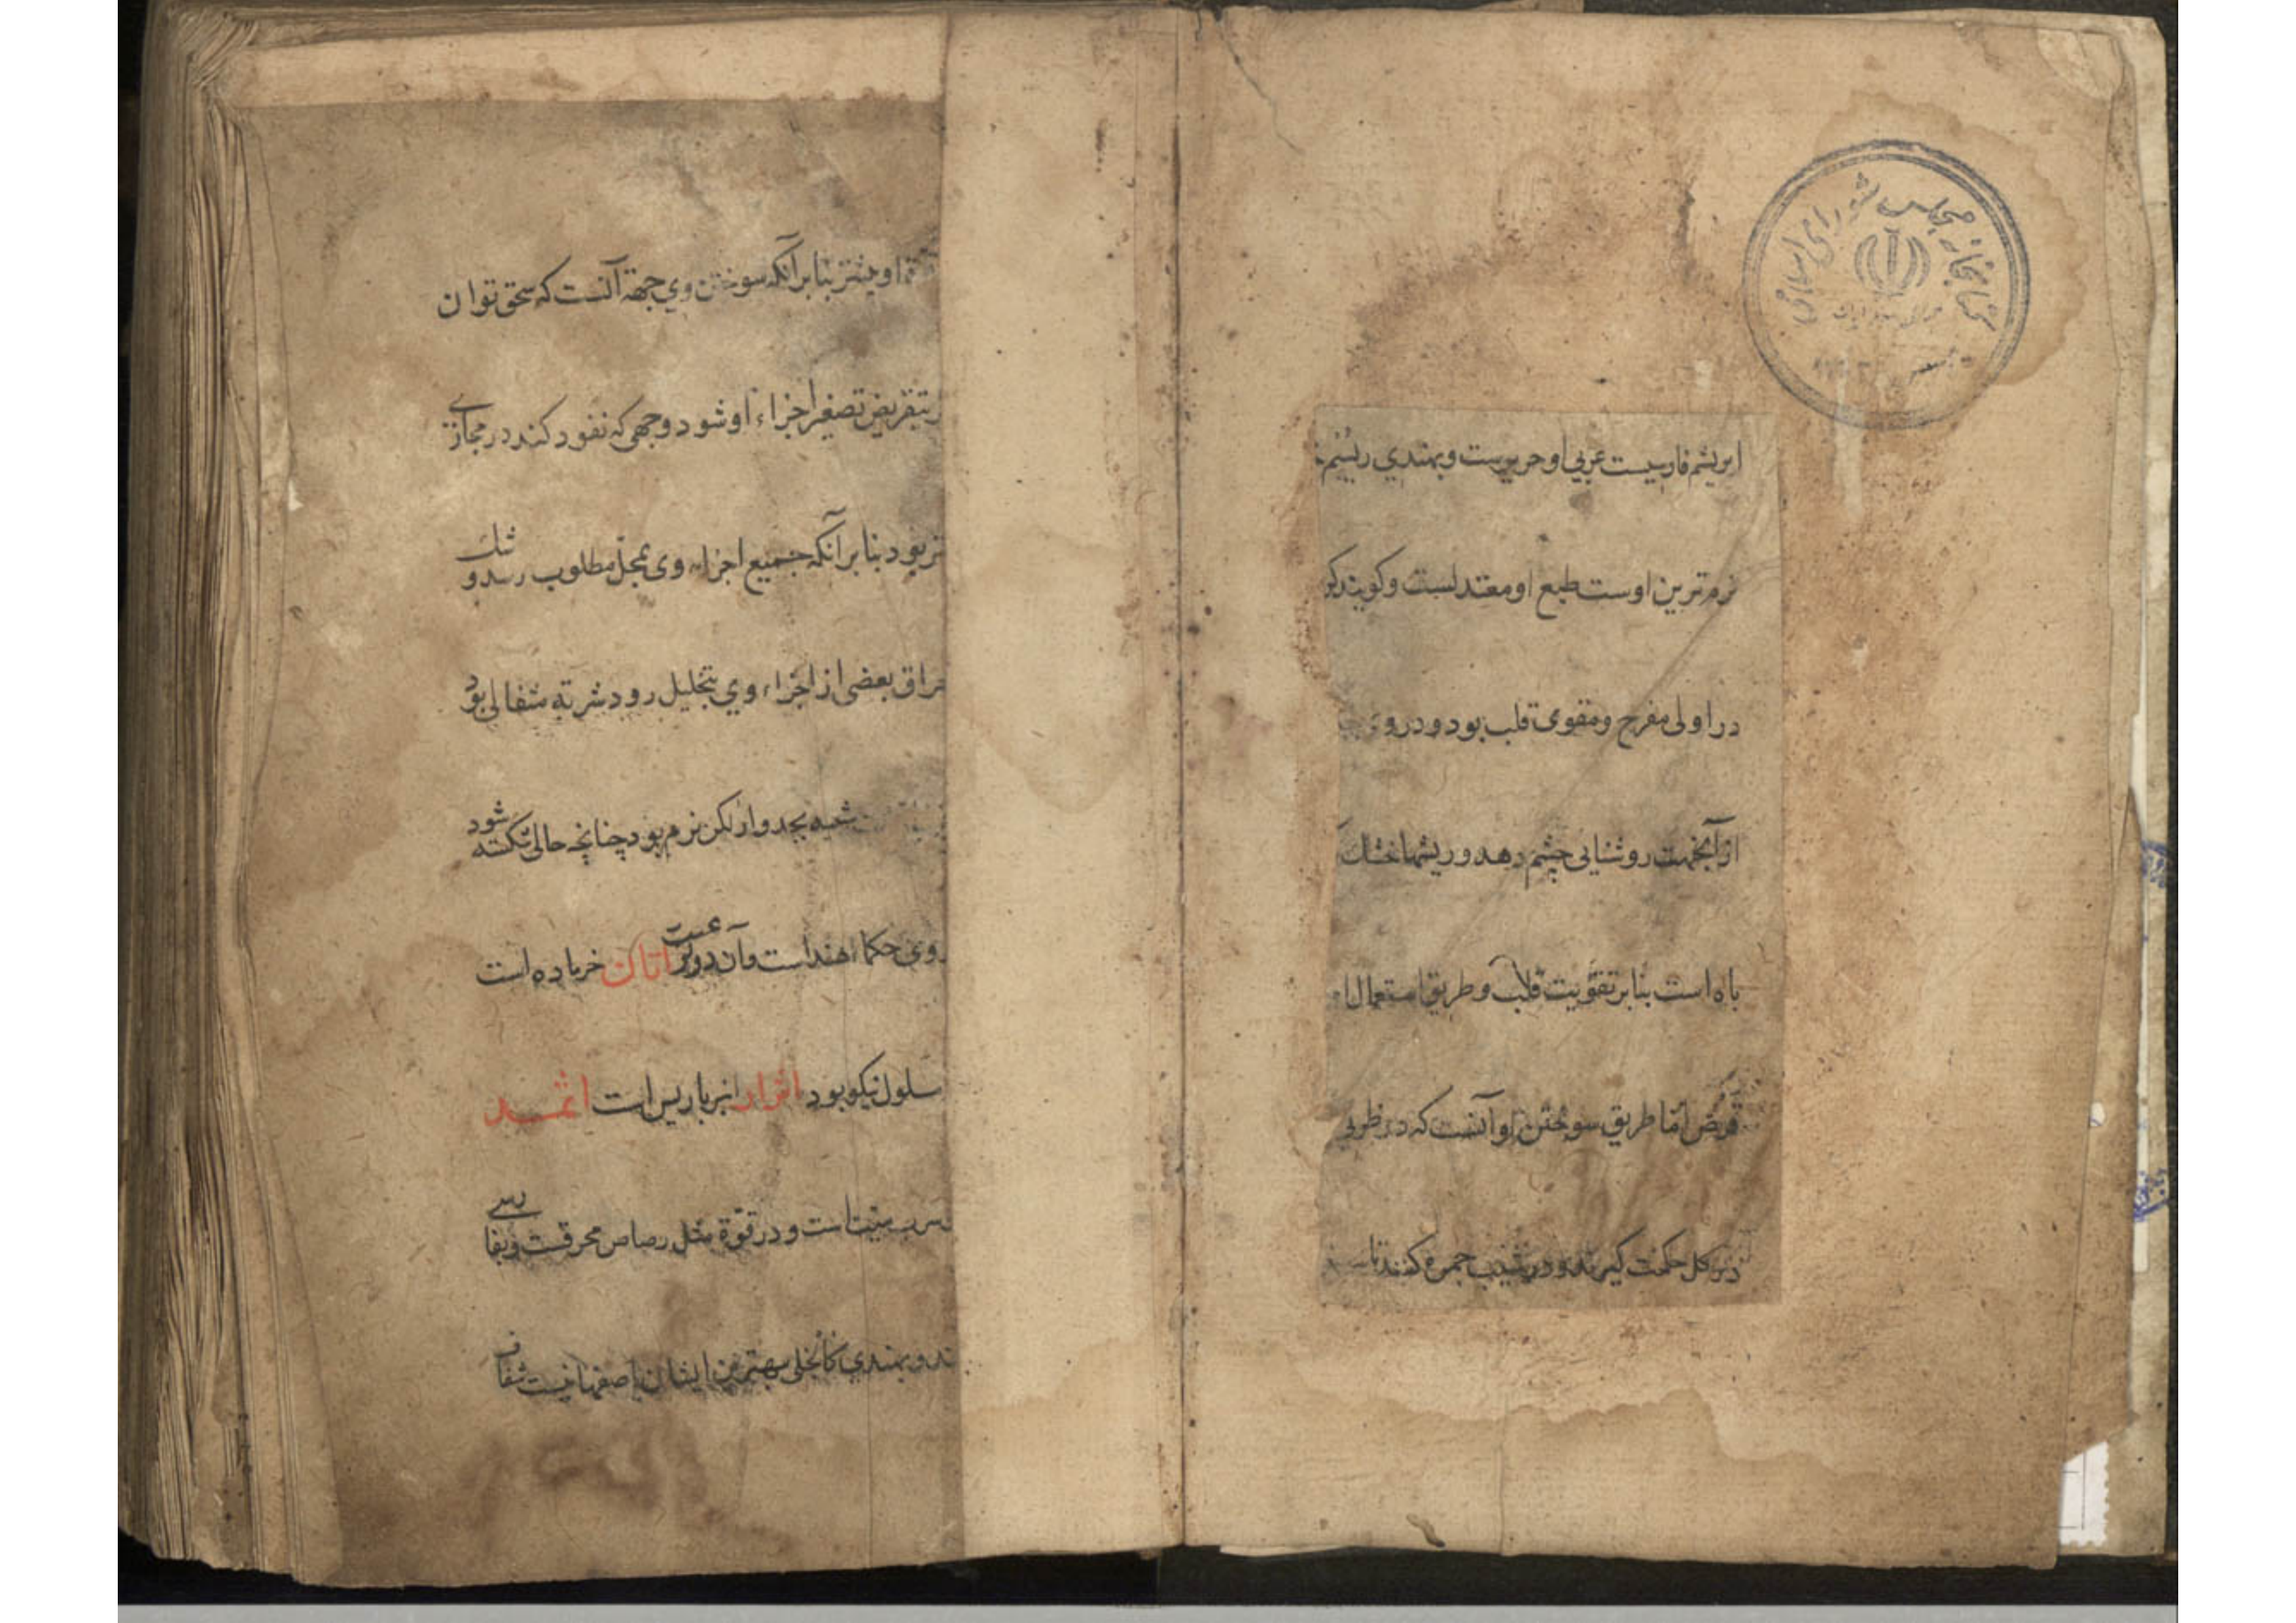 کتابخانه مجلس شورای اسلامی
ابریشم فارسیست عربی او حریرست و بهندی ریشم
نرم ترین اوست طبع او معتدلست و کویند کر
در اولی مفرح و مقوی قلب بود و در وی
از آنجهت روشنایی چشم دهد و ریشها خشک
باه است بنابر تقویت قلب و طریق استعمال
قرض اما طریق سوختن او آنست که در ظرفی
در کل حکمت کیرند و در جمره کنند تا
او بیشتر بنابر آنکه سوختن وی جهة آنست که سحق توان
بتقریض تصغیر اجزاء او شود وجهی که نفود کند در مجازی
تر بود بنابر آنکه جمیع اجزاء وی بمحل مطلوب رسد و شک
بعضی از اجزاء وی بتحلیل رود شربته مثقالی بود
شبیه بجدوار لکن نرم بود چنانچه حالی شکسته شود
روی حکماء هند است و آن اتان خر ماده است
سلول نیکو بود اثرار انبرباریس است اثمد
سرب میت است و در قوة مثل رصاص محرقست و بفارسی
و بهندی بهترین ایشان اصفهانیست شفاف